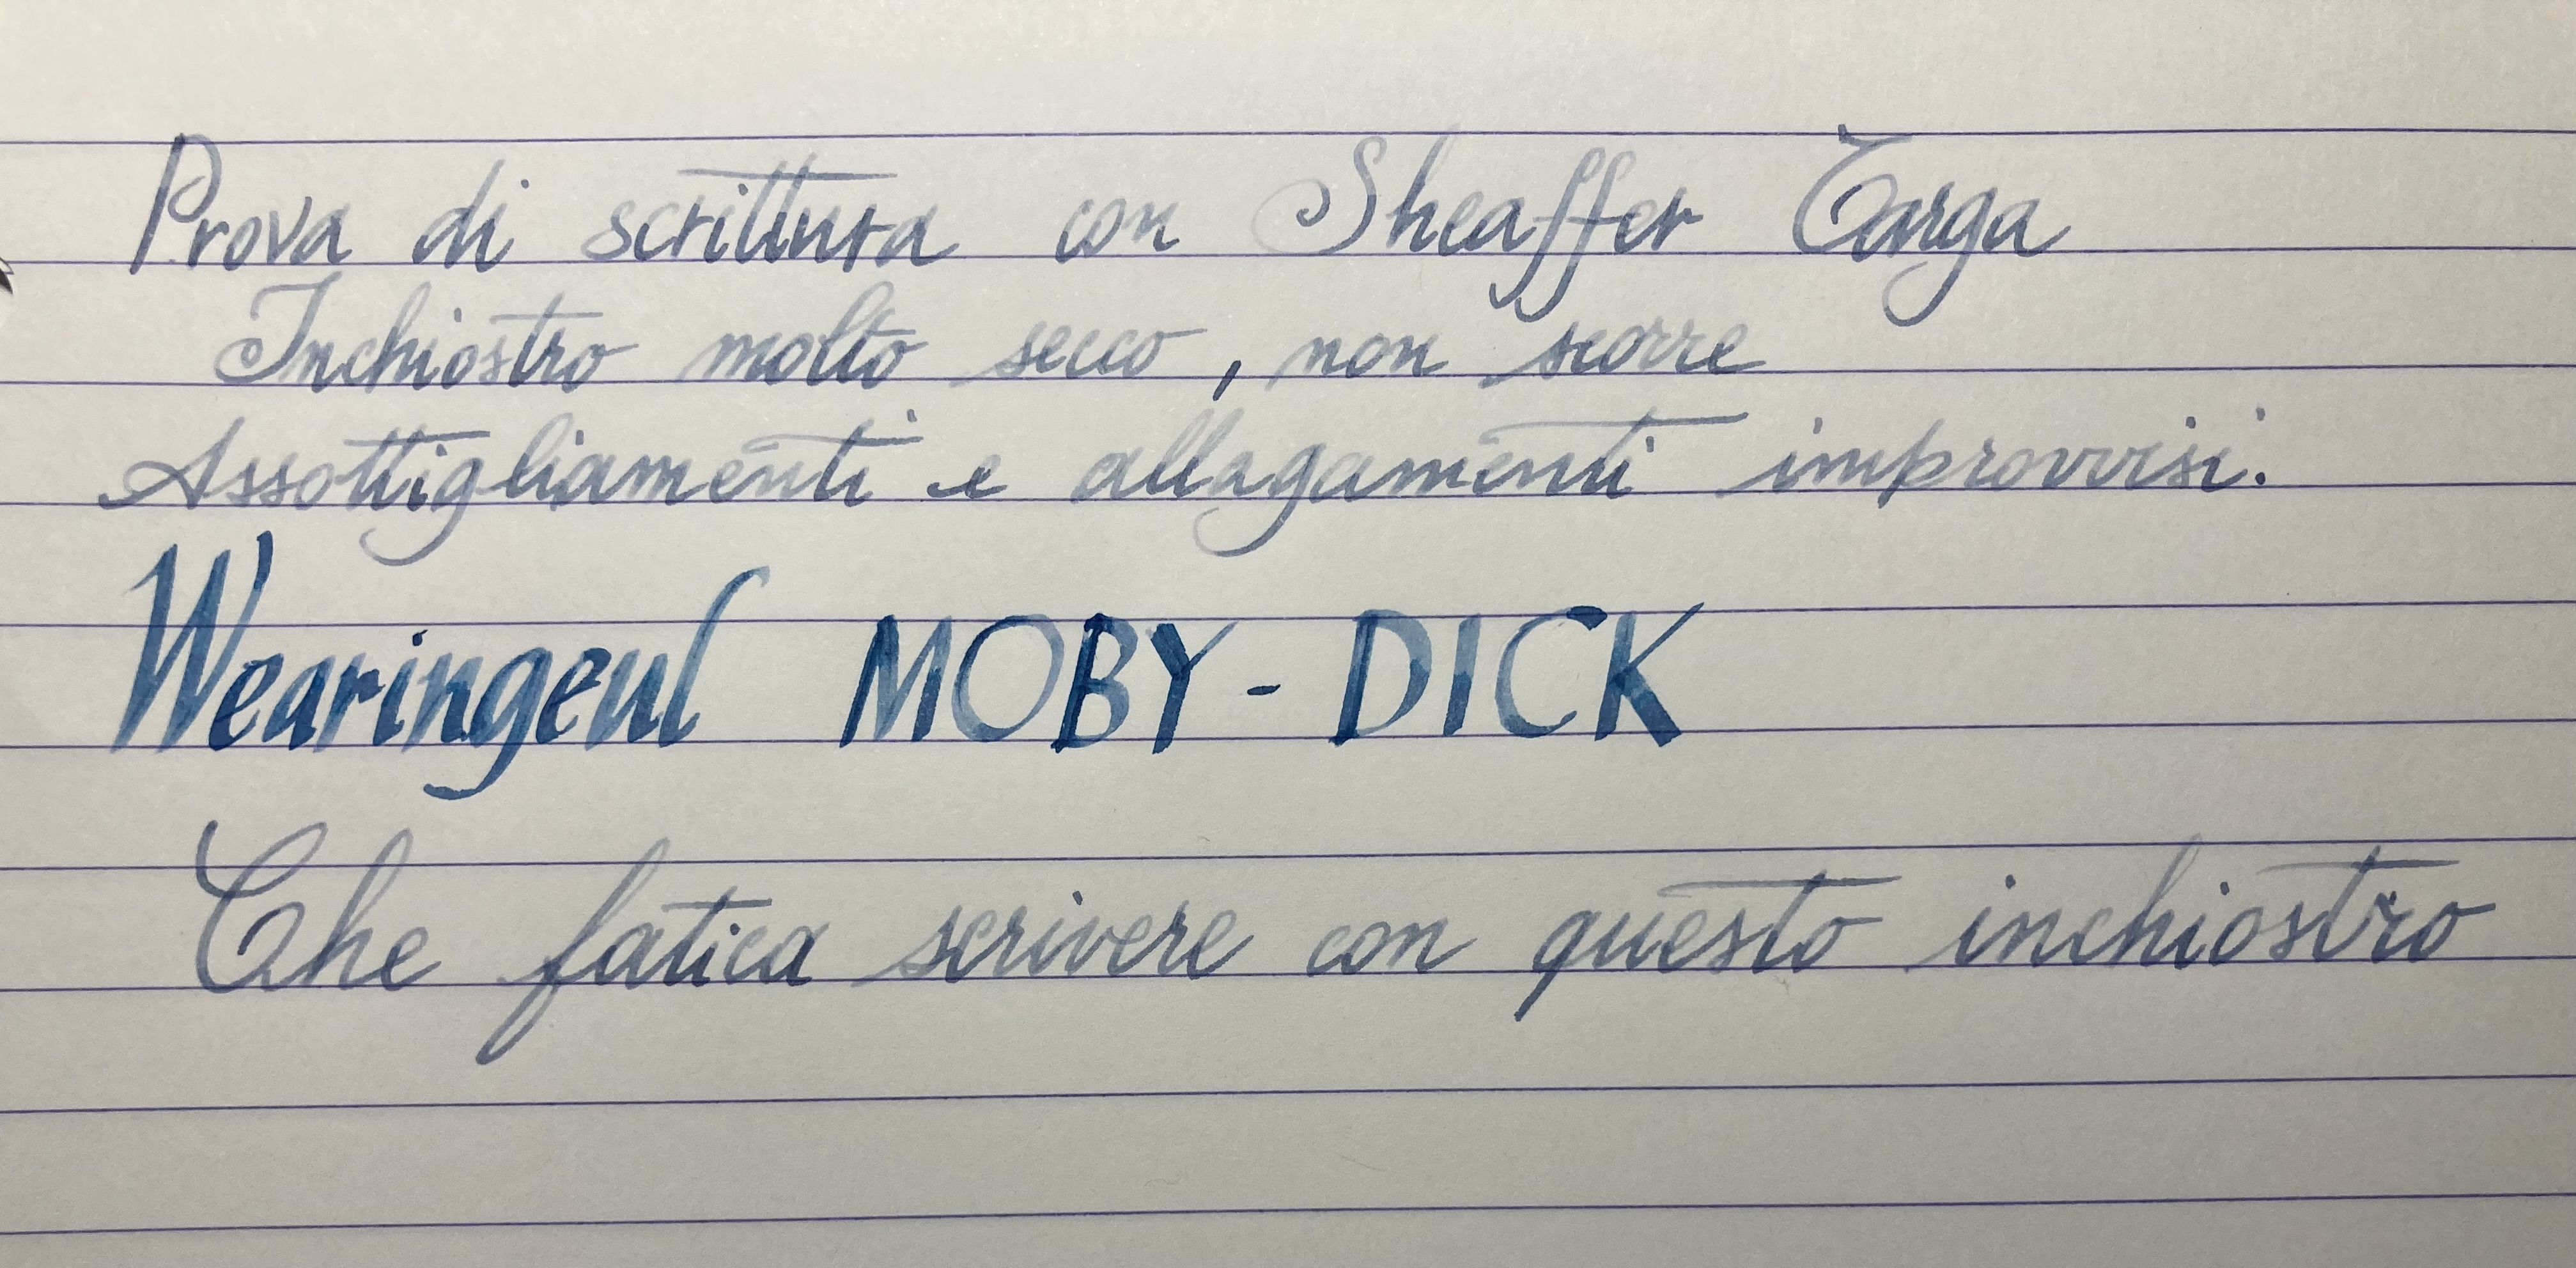 Prova di scrittura con Sheaffer Targa
Inchiostro molto secco, non scorre
Assottigliamenti e allagamenti improvvisi.
Wearingeul MOBY-DICK
Che fatica scrivere con questo inchiostro